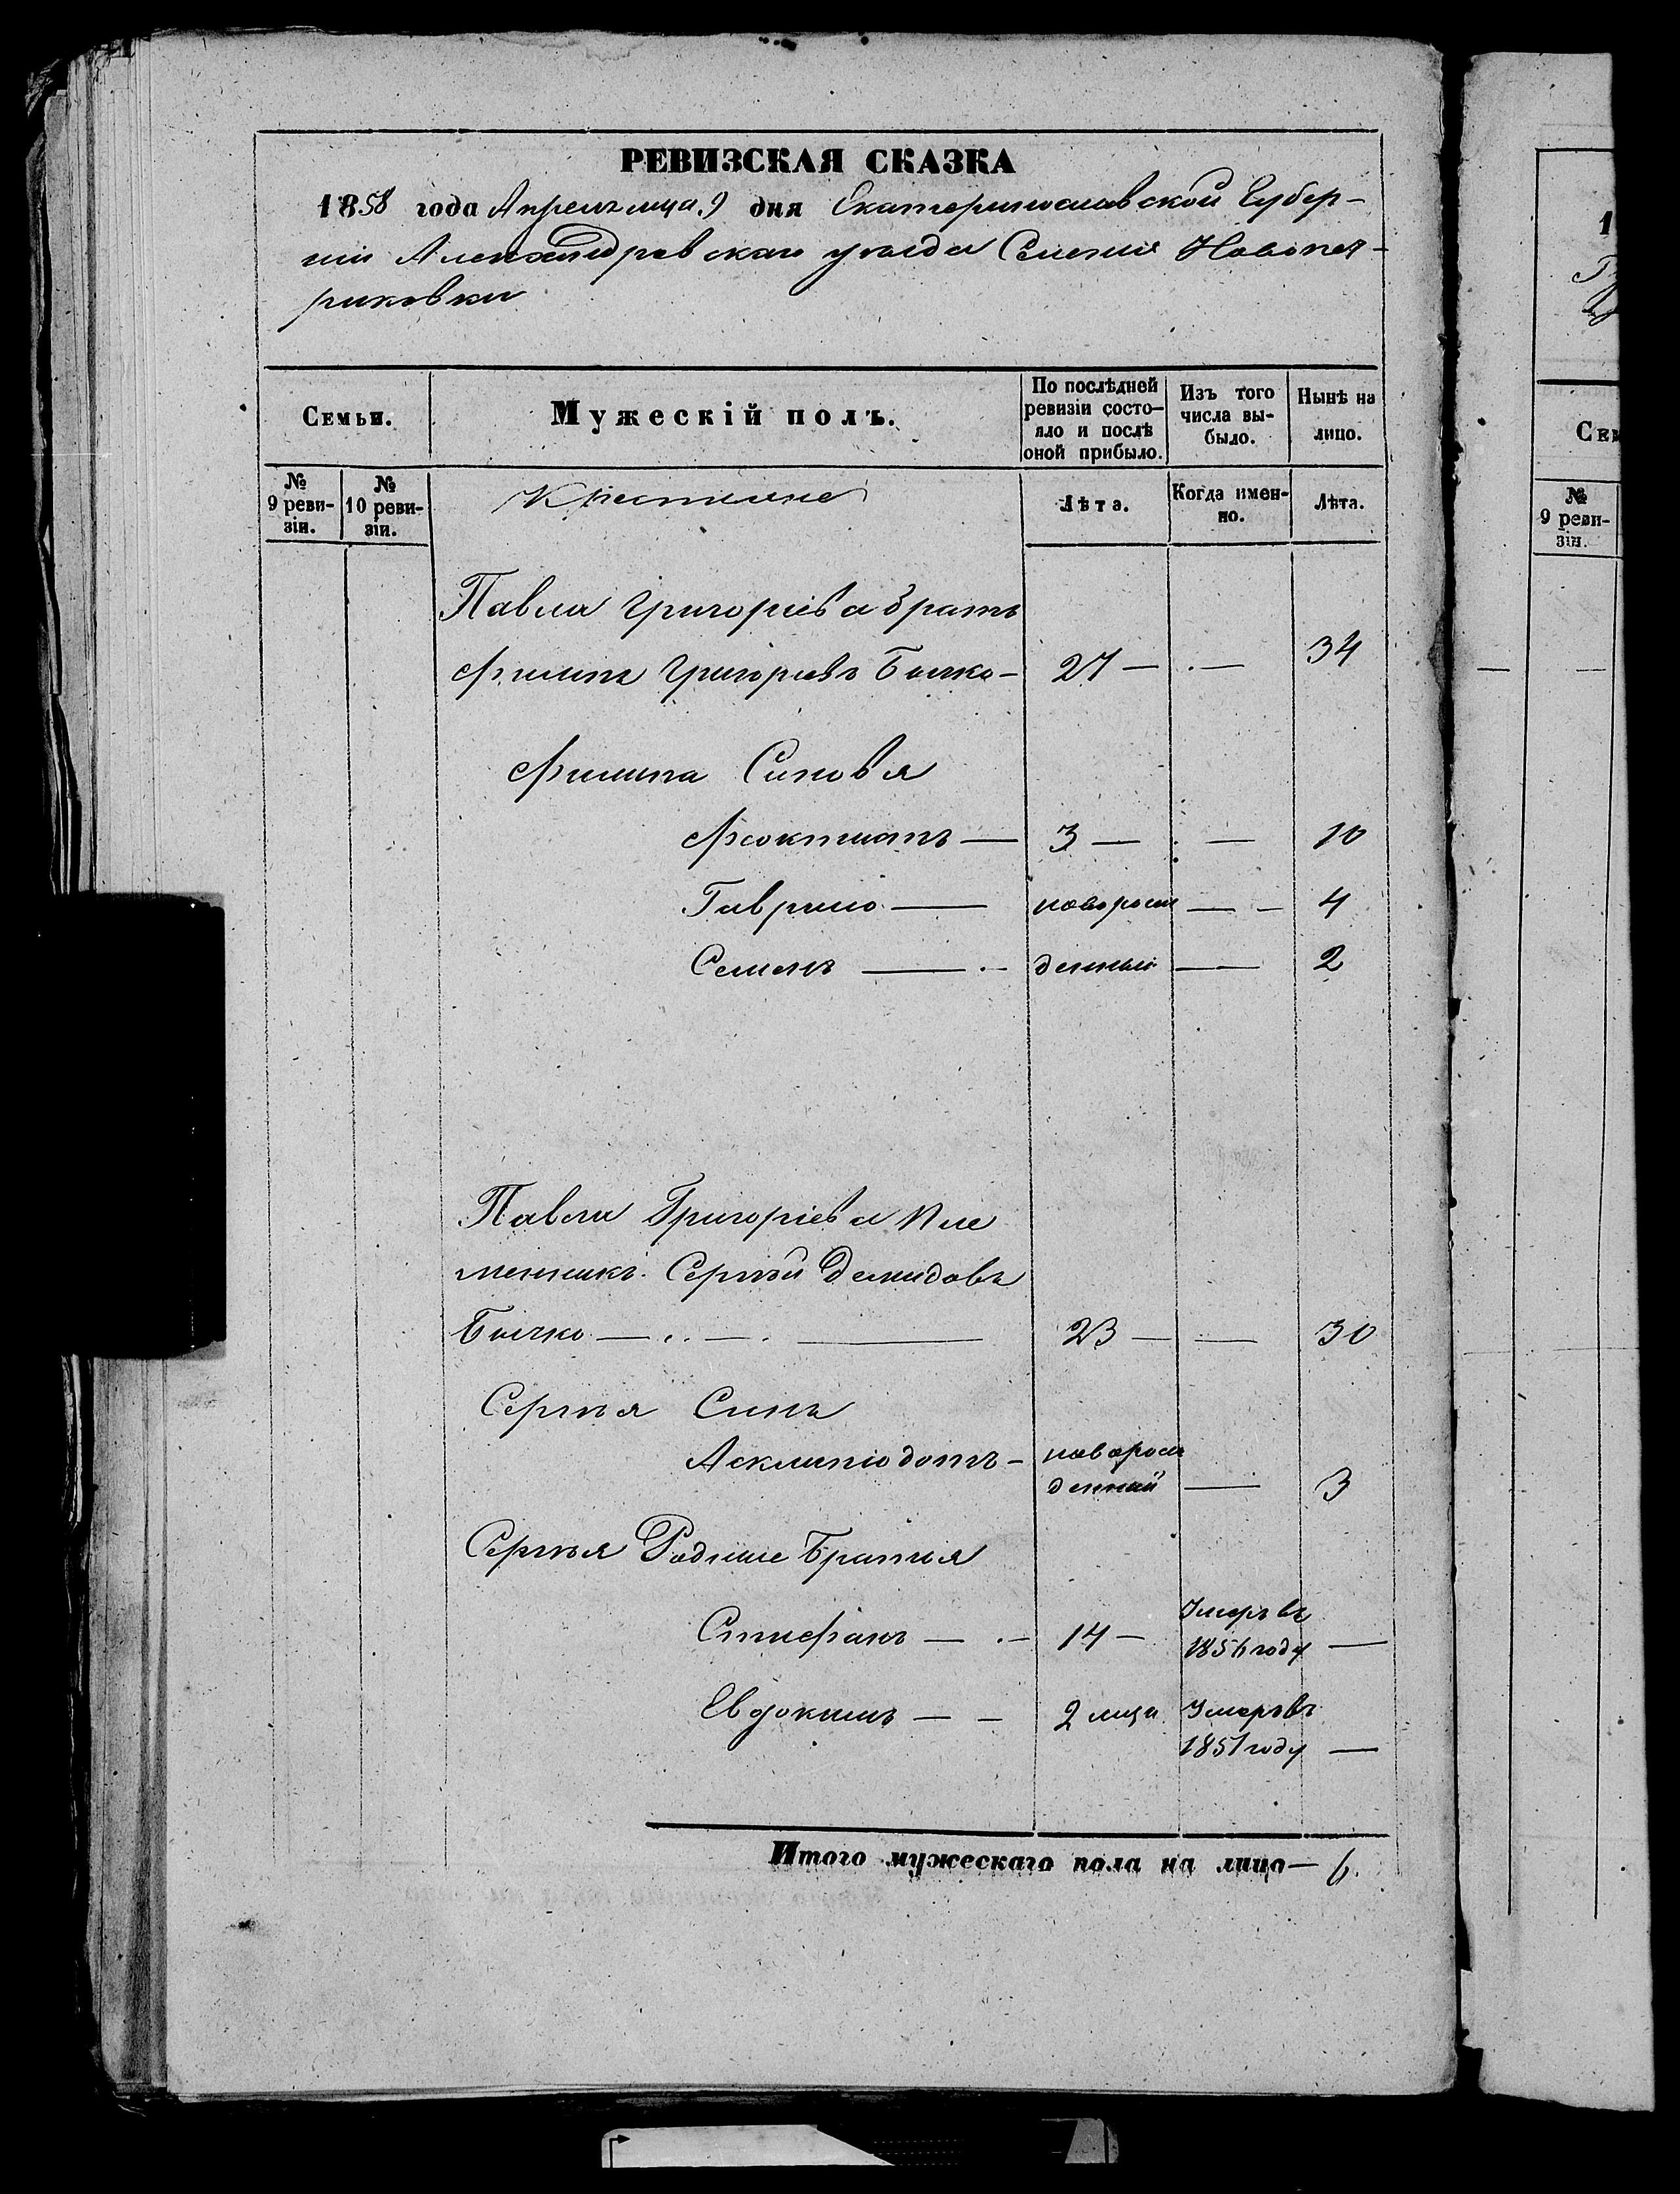 РЕВИЗСКАЯ СКАЗКА
1858 года Апрель мца 9 дня Екатеринославской Губер-
ніи Александровскаго уезда Селенія Новопет-
риковки
Семьи.
Мужескій полъ.
По послѣдней ревизіи состо-
яло и послѣ оной прибыло.
Изъ того числа вы-
было.
Нынѣ на лицо.
№ 9 реви-
зіи.
№ 10 реви-
зіи.
Крестьяне
Лѣта.
Когда имен-
но.
Лѣта.
Павла Григоріева братъ
Филипъ Григорьевъ Бычко — 27 — — 34
Филипа Синовья
Феоктистъ — 3 — — 10
Гаврило — новорож — — 4
Семенъ — денныи — 2
Павла Григоріева Пле
менникъ Сергѣй Демидовъ
Бычко — — — 23 — — 30
Сергѣя Синъ
Асклипіодотъ — новорож
денный — 3
Сергѣя Родные Братья
Стефанъ — — 14 — Умеръ въ
1856 году —
Евдокимъ — — 2 мца Умеръ въ
1851 году —
Итого мужескаго пола на лицо — 6.
1
Сем
№
9 реви-
зіи.